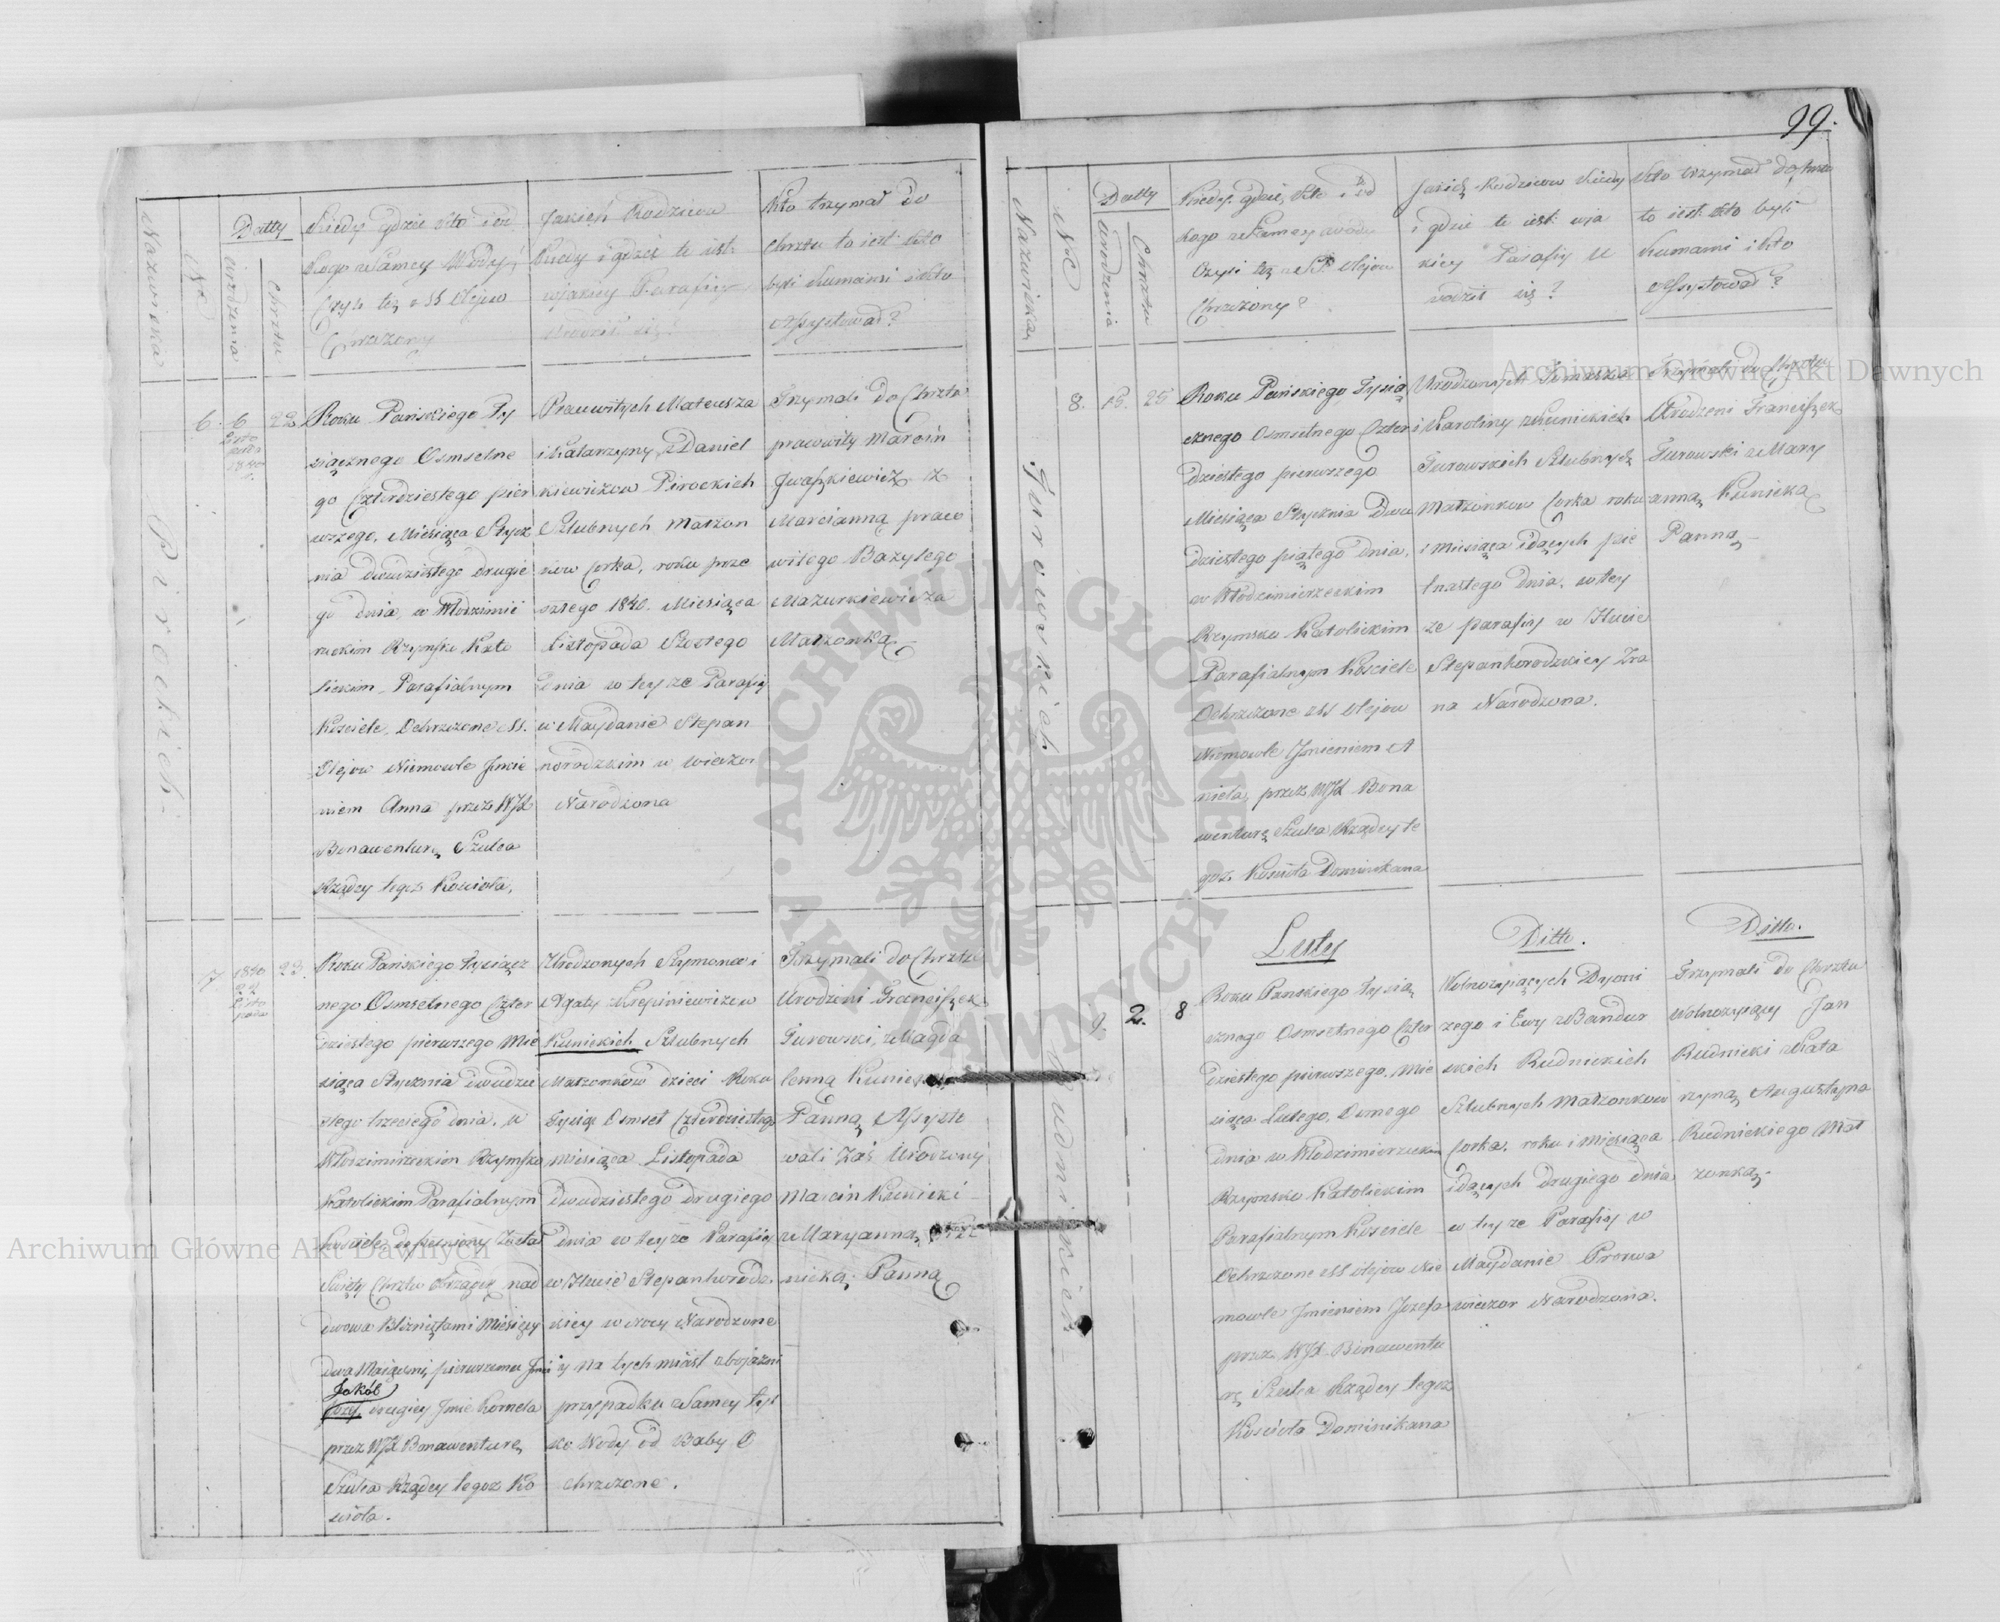 99.
Nazwiska
No
Datty
Urodzenia
Chrztu
Kiedy gdzie kto i
kogo z samey Wody,
Czyli też z SS Olejow
Chrzczony
Jakich Rodzicow
Kiedy i gdzie to iest
w jakiey Parafij
urodził się?
Kto trzymał do
Chrztu to iest kto
byli kumami i kto
assystował?
Pirockich
6.
6
Listo
pada
1840
22
Roku Pańskiego Ty
siącznego Osmsetne
go Czterdziestego pier
wszego, Miesiąca Stycz
nia dwudziestego drugie
go dnia, w Włodzimie
rzeckim Rzymsko Kato
lickim Parafialnym
Kościele, Ochrzczone SS.
Olejow Niemowle Jmie
niem Anna przez WJX
Bonawenturę Szulca
Rządcy tegoż Kościoła.
Pracowitych Mateusza
i Katarzyny z Daniel
kiewiczow Pirockich
Szlubnych Małżon
kow Corka, roku prze
szłego 1840. Miesiąca
Listopada Szostego
dnia w teyże Parafij
w Maydanie Stepan
norodzkim w wieczor
Narodzona
Trzymali do Chrztu
pracowity Marcin
Jwaszkiewicz z
Marcianną praco
witego Bazylego
Mazurkiewicza
Małżonką
7
1840
22
Listo
pada
23.
Roku Pańskiego tysiącz
nego Osmsetnego Czter
dziestego pierwszego Mie
siąca Stycznia dwudzie
stego trzeciego dnia, w
Włodzimirzeckim Rzymsko
Katolickim Parafialnym
Kościele, dopełniony został
Święty Chrztu Obrządek nad
dwoma Bliźniętami Miesięcy
dwa Maiącemi, pierwszemu Jmie
Jakób
drugiey Jmie Kornela
przez WJX Bonawenturę
Szulca Rządcy tegoż Ko
ścioła.
Urodzonych Szymona i
Agaty z Krepiniewiczow
Kunickich Szlubnych
Małżonków dzieci Roku
Tysiąc Osmset Czterdziestego
Miesiąca Listopada
dwudziestego drugiego
dnia w teyże Parafij
w Hucie Stepanhrodz
kiey w Nocy Narodzone
y na tychmiast z bojaźni
przypadku z samey tyl
ko Wody od Baby O
chrzczone.
Trzymali do Chrztu
Urodzeni Franciszek
Turowski, z Magda
lenną Kunicką
Panną, Assysto
wali Zaś Urodzony
Marcin Kunicki
z Maryanną Ku
nicką Panną
Nazwiska
No
Datty
Urodzenia
Chrztu
Kiedy, gdzie, kto i
kogo z samey wody
czyli też z SS. Olejow
Chrzczony?
Jakich Rodzicow kiedy
i gdzie to iest w ja
kiey Parafij u
rodził się?
Kto trzymał do Chrztu
to iest kto byli
kumami i kto
assystował?
Turowskich
8.
15.
25
Roku Pańskiego Tysią
cznego Osmsetnego Czter
dziestego pierwszego
Miesiąca Stycznia Dwu
dziestego piątego dnia,
w Włodzimierzeckim
Rzymsko Katolickim
Parafialnym Kościele
Ochrzczone z SS Olejow
Niemowle Jmieniem A
niela, przez WJX Bona
wenturę Szulca Rządcy te
goż Kościoła Dominikana
Urodzonych Tomasza
i Karoliny z Kunickich
Turowskich Szlubnych
Małżonkow Corka roku
i Miesiąca idących pie
tnastego dnia, w tey
że parafij w Hucie
Stepanhorodzkiey Zra
na Narodzona.
Trzymali do Chrztu
Urodzeni Franciszek
Turowski z Mary
anną Kunicką
Panną
Luty
Ditto.
Ditto.
Rudnickich
9.
2.
8
Roku Pańskiego tysią
cznego Osmsetnego Czter
dziestego pierwszego Mie
siąca Lutego, Osmego
dnia w Włodzimierzeckim
Rzymsko Katolickim
Parafialnym Kościele
Ochrzczone z SS Olejow Nie
mowle Jmieniem Jozefa
przez WJX Bonawentu
rę Szulca Rządcy tegoż
Kościoła Dominikana
Wolnożyiących Dyoni
zego i Ewy z Bandur
skich Rudnickich
Szlubnych Małżonkow
Corka, roku i Miesiąca
idących drugiego dnia
w teyże Parafij w
Maydanie Prorwa
wieczor Narodzona.
Trzymali do Chrztu
Wolnożyiący Jan
Rudnicki z Kata
rzyną Augustyna
Rudnickiego Mał
żonką
Archiwum Główne Akt Dawnych
Archiwum Główne Akt Dawnych
ARCHIWUM GŁÓWNE AKT DAWNYCH